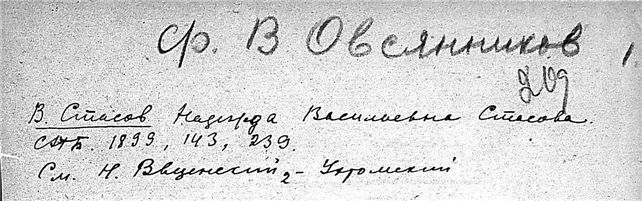 Ф. В Овсянников
209
В. Стасов Надежда Васильевна Стасова.
СПБ. 1899, 143, 239.
См. Н. Введенский 2 - Ухтомский